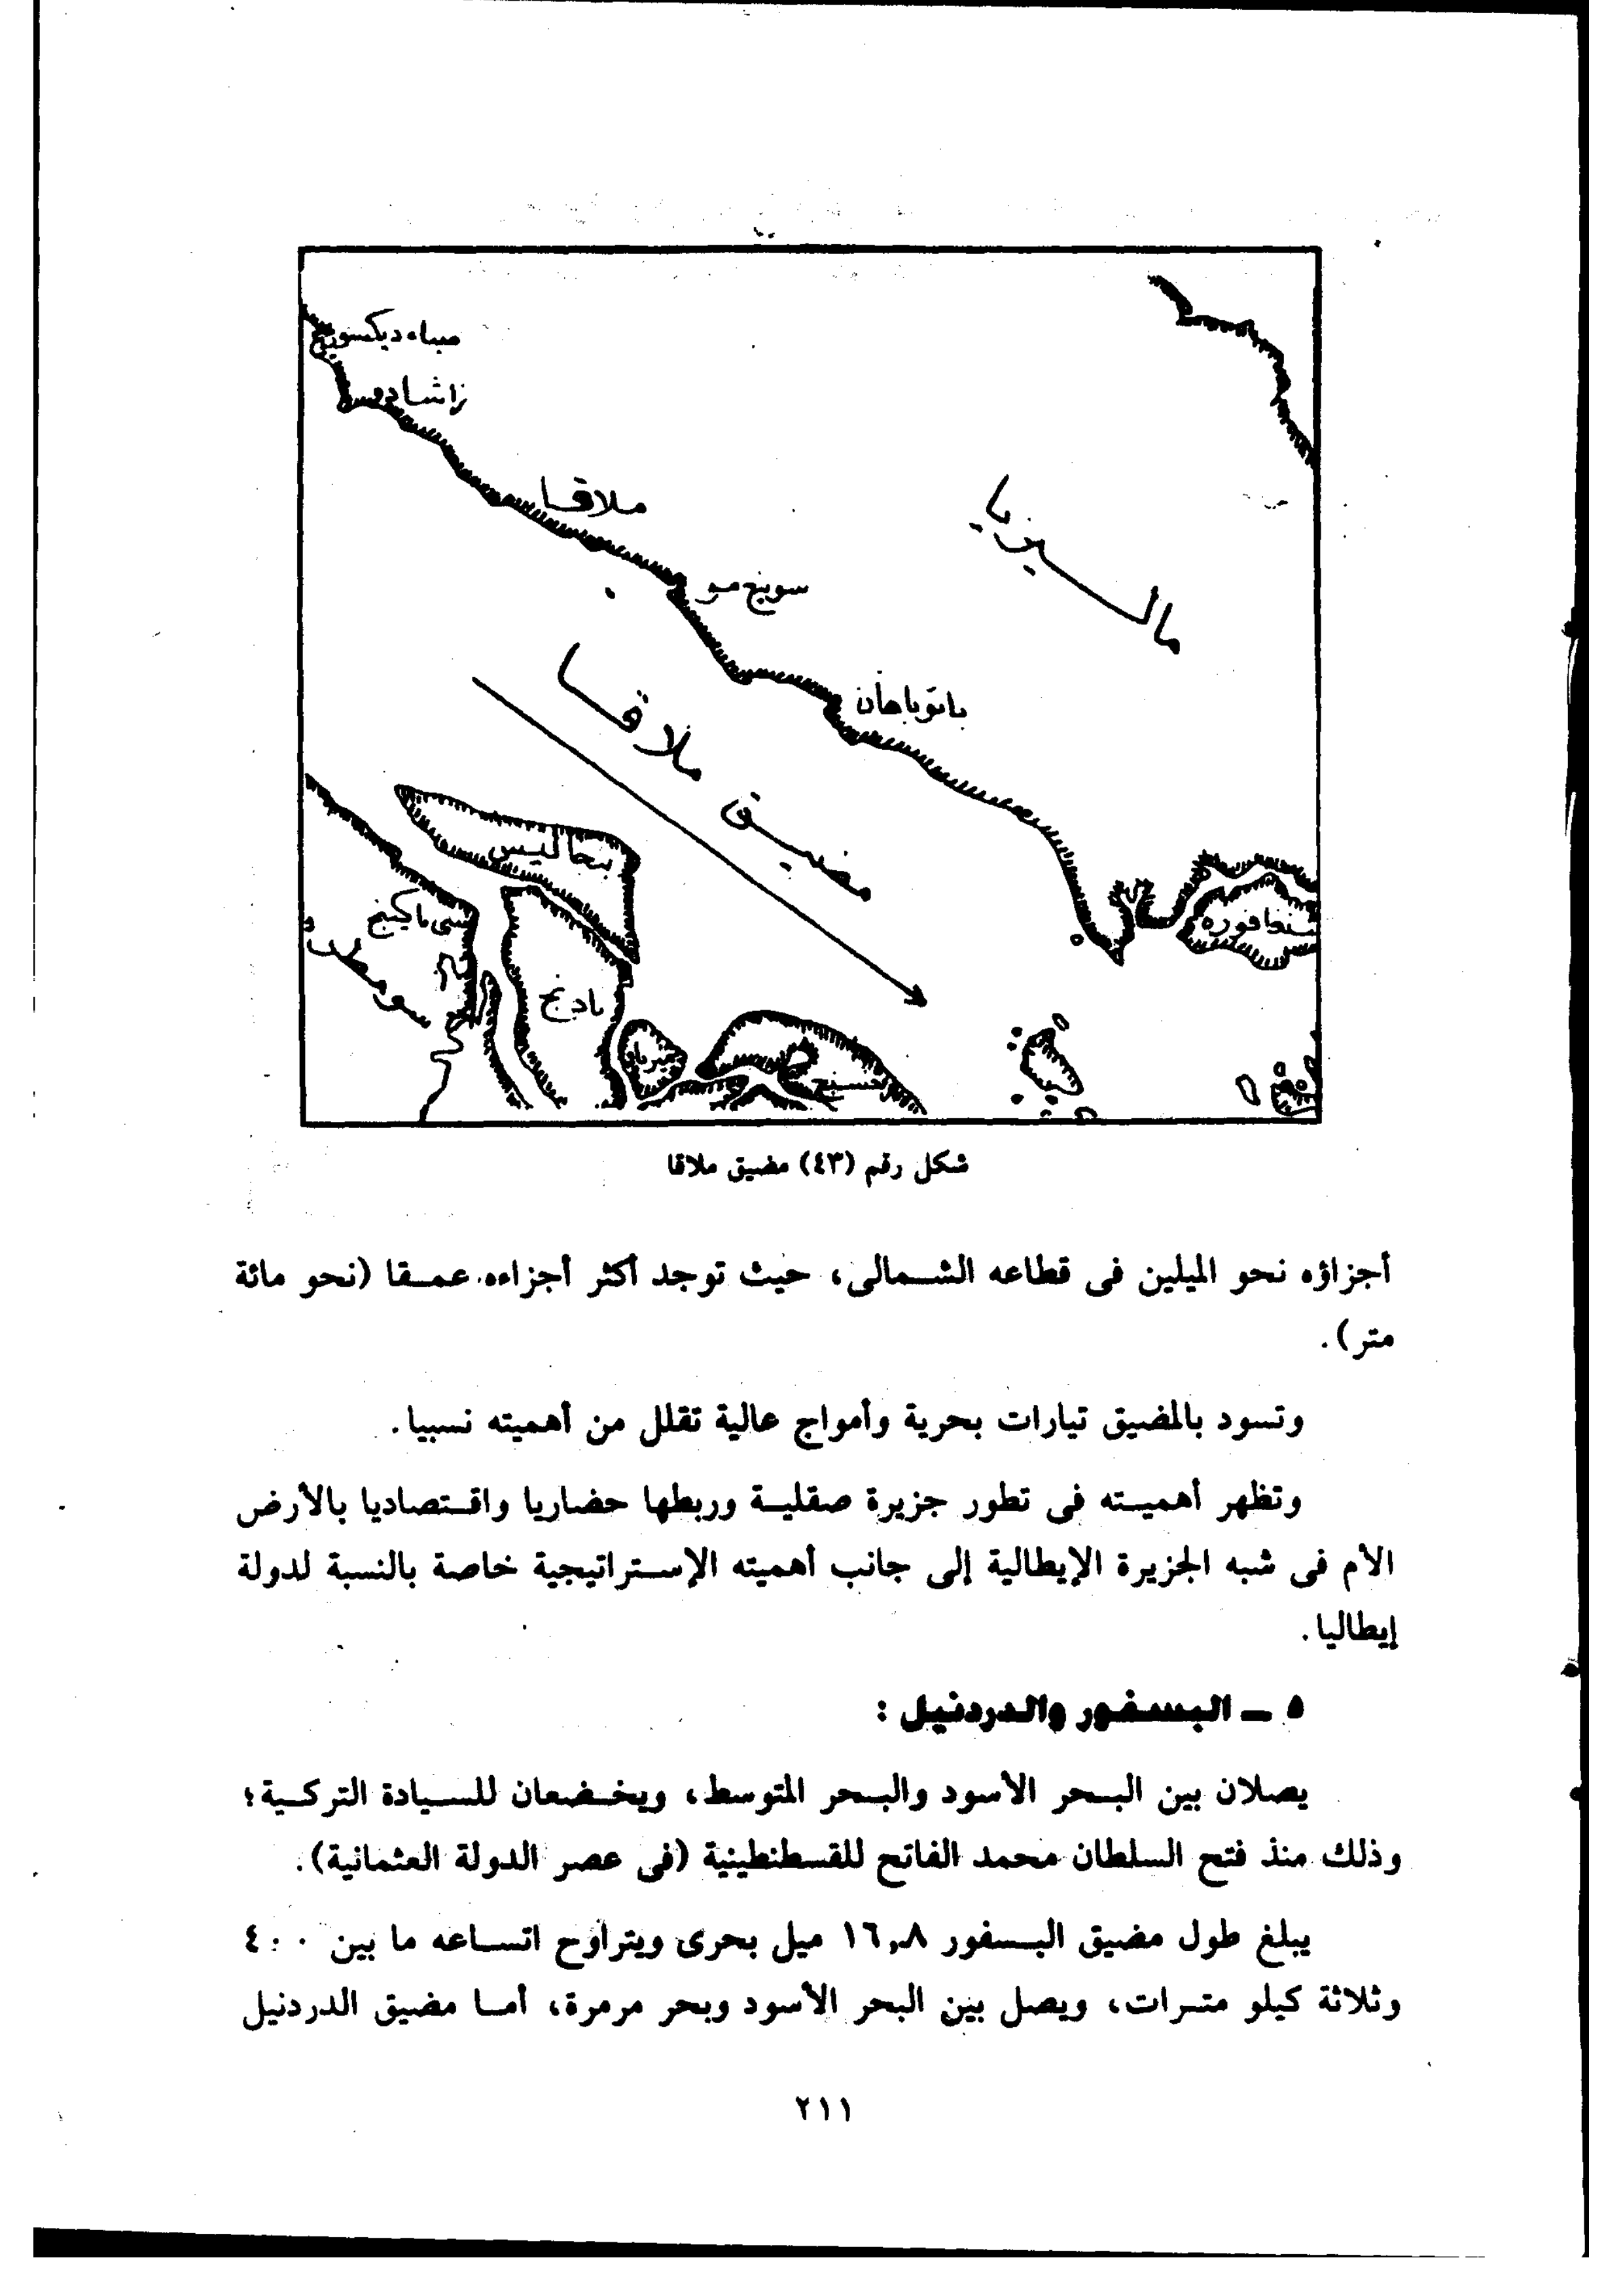 ميناء ديكسونج
زاشادو
ملاقا
ماليزيا
سوينج مو
باتوباهان
مضيق ملاقا
بنجاليس
سنغافورة
سى باكينج
سومطرة
بادنج
شكل رقم (٤٣) مضيق ملاقا
أجزاؤه نحو الميلين فى قطاعه الشمالى، حيث توجد أكثر أجزاءه عمقا (نحو مائة
متر).
وتسود بالمضيق تيارات بحرية وأمواج عالية تقلل من أهميته نسبيا.
وتظهر أهميته فى تطور جزيرة صقلية وربطها حضاريا واقتصاديا بالأرض
الأم فى شبه الجزيرة الإيطالية إلى جانب أهميته الإستراتيجية خاصة بالنسبة لدولة
إيطاليا.
٥ ـ البسفور والدردنيل :
يصلان بين البحر الأسود والبحر المتوسط، ويخضعان للسيادة التركية؛
وذلك منذ فتح السلطان محمد الفاتح للقسطنطينية (فى عصر الدولة العثمانية).
يبلغ طول مضيق البسفور ١٦,٨ ميل بحرى ويتراوح اتساعه ما بين ٤٠٠
وثلاثة كيلو مترات، ويصل بين البحر الأسود وبحر مرمرة، أما مضيق الدردنيل
٢١١